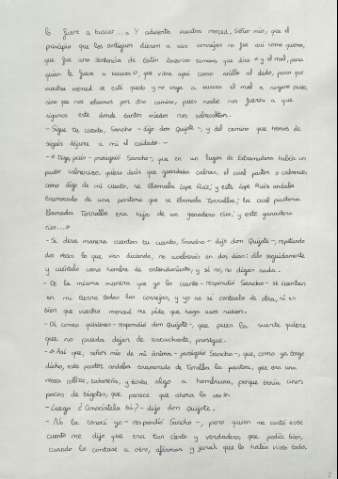 lo fuere a buscar...» Y advierta vuestra merced, señor mío, que el
principio que los antiguos dieron a sus consejas no fue así como quiera,
que fue una sentencia de Catón Zonzorino romano, que dice «y el mal, para
quien le fuere a buscar», que viene aquí como anillo al dedo, para que
vuestra merced se esté quedo y no vaya a buscar el mal a ninguna parte,
sino que nos volvamos por otro camino, pues nadie nos fuerza a que
sigamos este donde tantos miedos nos sobresaltan.
- Sigue tu cuento, Sancho - dijo don Quijote -, y del camino que hemos de
seguir déjame a mí el cuidado. -
- «Digo, pues - prosiguió Sancho -, que en un lugar de Extremadura había un
pastor cabrerizo, quiero decir que guardaba cabras, el cual pastor o cabrerizo
como digo de mi cuento, se llamaba Lope Ruiz; y este Lope Ruiz andaba
enamorado de una pastora que se llamaba Torralba; la cual pastora
llamada Torralba era hija de un ganadero rico; y este ganadero
rico...»
- Si desa manera cuentas tu cuento, Sancho - dijo don Quijote -, repitiendo
dos veces lo que vas diciendo, no acabarás en dos días: dilo seguidamente
y cuéntalo como hombre de entendimiento, y si no, no digas nada.
- De la misma manera que yo lo cuento - respondió Sancho - se cuentan
en mi tierra todas las consejas, y yo no sé contarlo de otra, ni es
bien que vuestra merced me pida que haga usos nuevos.
- Di como quisieres - respondió don Quijote -, que pues la suerte quiere
que no pueda dejar de escucharte, prosigue.
- «Así que, señor mío de mi ánima - prosiguió Sancho -, que, como ya tengo
dicho, este pastor andaba enamorado de Torralba la pastora, que era una
moza rolliza, zahareña, y tiraba algo a hombruna, porque tenía unos
pocos de bigotes, que parece que ahora la veo.
- Luego ¿Conocístela tú? - dijo don Quijote.
- No la conocí yo - respondió Sancho -, pero quien me contó este
cuento me dijo que era tan cierto y verdadero, que podía bien,
cuando lo contase a otro, afirmar y jurar que lo había visto todo.